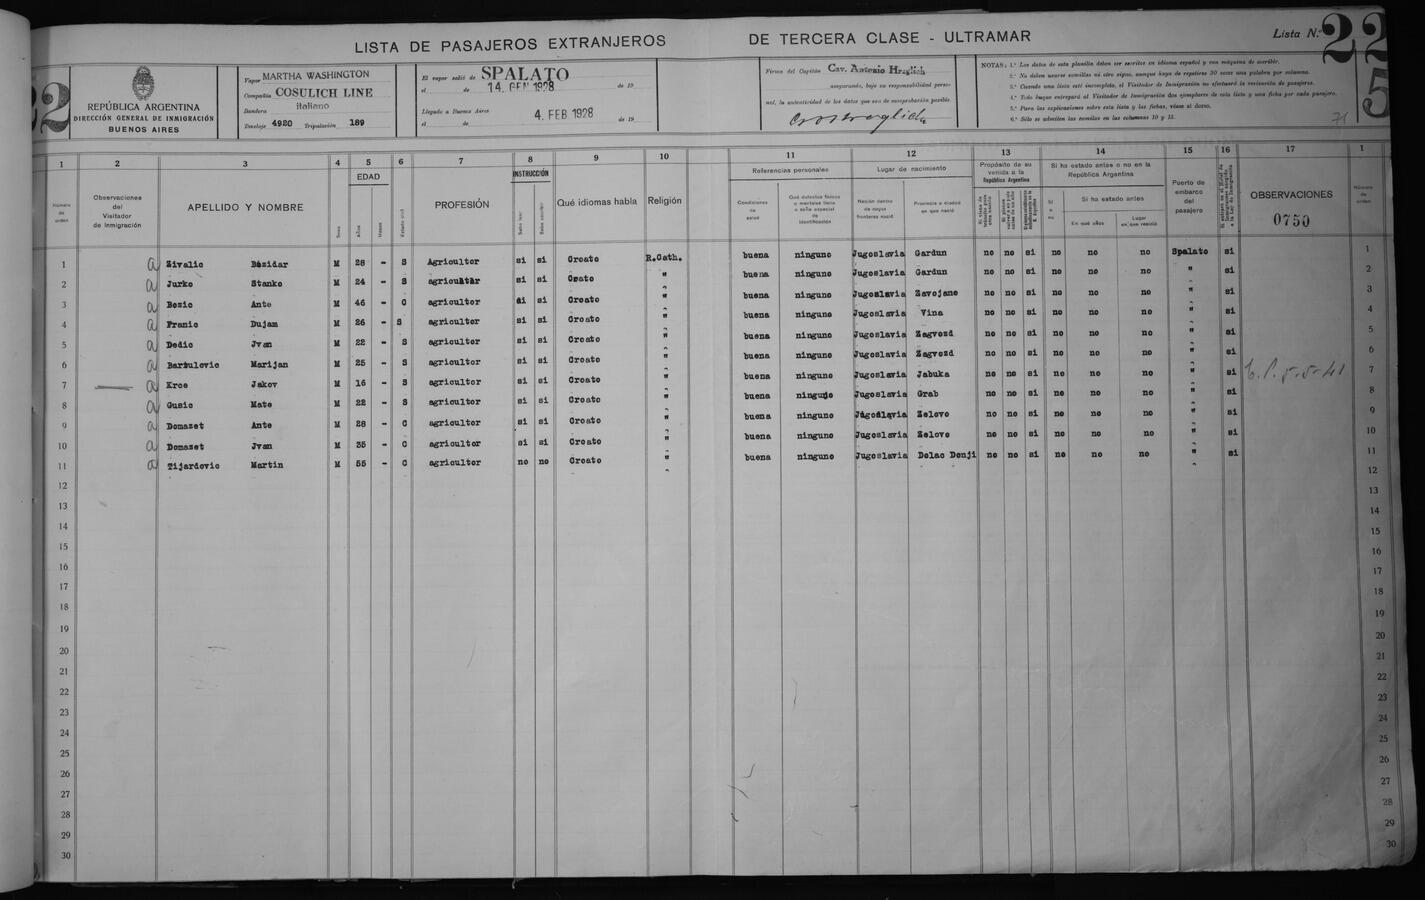 LISTA DE PASAJEROS EXTRANJEROS DE TERCERA CLASE - ULTRAMAR
Lista N.° 22
REPÚBLICA ARGENTINA
DIRECCIÓN GENERAL DE INMIGRACIÓN
BUENOS AIRES
Vapor MARTHA WASHINGTON
Compañía COSULICH LINE
Bandera italiano
Tonelaje 4920 Tripulación 189
El vapor salió de SPALATO
el 14. GEN 1928 de 19
Llegado a Buenos Aires
el 4. FEB 1928 de 19
Firma del Capitán Cav. Antonio Hreglich
asegurando, bajo su responsabilidad personal, la autenticidad de los datos que son de comprobación posible.
NOTAS: 1.° Los datos de esta planilla deben ser escritos en idioma español y con máquina de escribir.
2.° No deben usarse comillas ni otro signo, aunque haya de repetirse 30 veces una palabra por columna.
3.° Cuando una lista esté incompleta, el Visitador de Inmigración no efectuará la revisación de pasajeros.
4.° Todo buque entregará al Visitador de Inmigración dos ejemplares de esta lista y una ficha por cada pasajero.
5.° Para las explicaciones sobre esta lista y las fichas, véase al dorso.
6.° Sólo se admiten las comillas en las columnas 10 y 15.
71
5
1 2 3 4 5 6 7 8 9 10 11 12 13 14 15 16 17 1
Número de orden
Observaciones del Visitador de Inmigración
APELLIDO Y NOMBRE
Sexo
EDAD
Años
Meses
Estado civil
PROFESIÓN
INSTRUCCIÓN
Sabe leer
Sabe escribir
Qué idiomas habla
Religión
Referencias personales
Condiciones de salud
Qué defectos físicos o mentales tiene o seña especial de identificación
Lugar de nacimiento
Nación dentro de cuyas fronteras nació
Provincia o ciudad en que nació
Propósito de su venida a la República Argentina
Si ha estado antes o no en la República Argentina
Si ha estado antes
En qué años
Lugar en que residió
Puerto de embarco del pasajero
OBSERVACIONES
0750
Número de orden
1 a Zivalic Bozidar M 28 - S Agricultor si si Croato R.Cath. buena ninguno Jugoslavia Gardun no no si no no no Spalato si 1
2 a Jurko Stanko M 24 - S agricultor si si Croato " buena ninguno Jugoslavia Gardun no no si no no no " si 2
3 a Bozic Ante M 46 - C agricultor si si Croato " buena ninguno Jugoslavia Zavojane no no si no no no " si 3
4 a Franic Dujam M 26 - S agricultor si si Croato " buena ninguno Jugoslavia Vina no no si no no no " si 4
5 a Dedic Jvan M 22 - S agricultor si si Croato " buena ninguno Jugoslavia Zagvozd no no si no no no " si 5
6 a Bartulovic Marijan M 25 - S agricultor si si Croato " buena ninguno Jugoslavia Zagvozd no no si no no no " si 6
7 a Kroe Jakov M 16 - S agricultor si si Croato " buena ninguno Jugoslavia Jabuka no no si no no no " si 7
8 a Gusic Mate M 22 - S agricultor si si Croato " buena ninguno Jugoslavia Grab no no si no no no " si 8
9 a Domazet Ante M 28 - C agricultor si si Croato " buena ninguno Jugoslavia Zelovo no no si no no no " si 9
10 a Domazet Jvan M 35 - C agricultor si si Croato " buena ninguno Jugoslavia Zelovo no no si no no no " si 10
11 a Tijardovic Martin M 55 - C agricultor no no Croato " buena ninguno Jugoslavia Dolac Donji no no si no no no " si 11
12 12
13 13
14 14
15 15
16 16
17 17
18 18
19 19
20 20
21 21
22 22
23 23
24 24
25 25
26 26
27 27
28 28
29 29
30 30